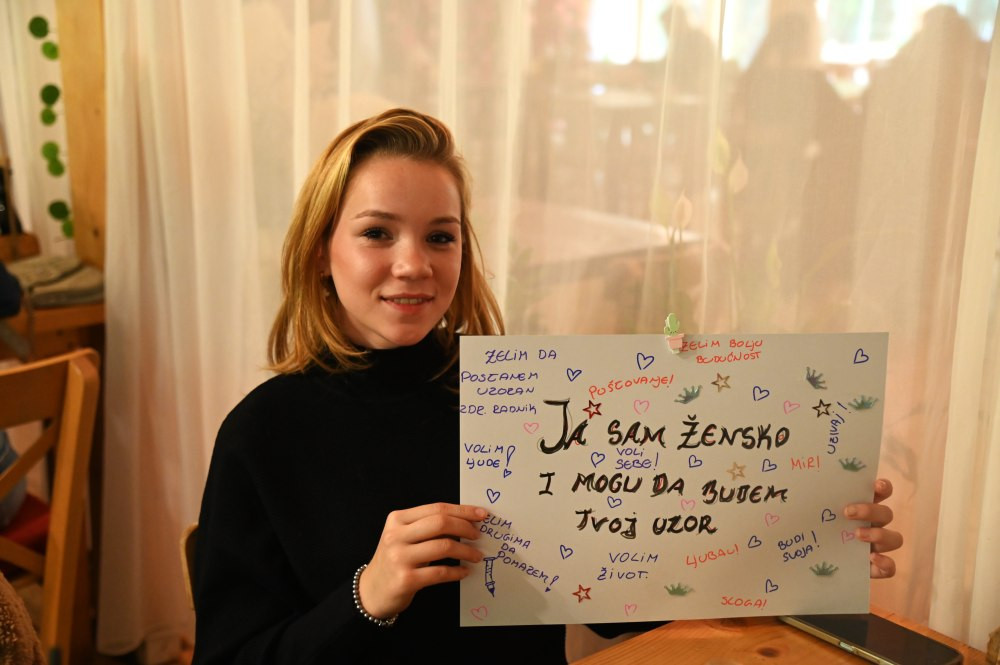 ŽELIM DA
POSTANEM
UZORAN
ZDR. RADNIK
PUŠTOVANJE!
ŽELIM BOLJU
BUDUĆNOST
JA SAM ŽENSKO
I MOGU DA BUDEM
TVOJ UZOR
VOLIM
LJUDE!
VOLI
SEBE!
UŽIVAJ!
MIR!
ŽELIM
DRUGIMA
DA
POMAŽEM!
VOLIM
ŽIVOT.
LJUBAV!
BUDI
SVOJA!
SLOGA!